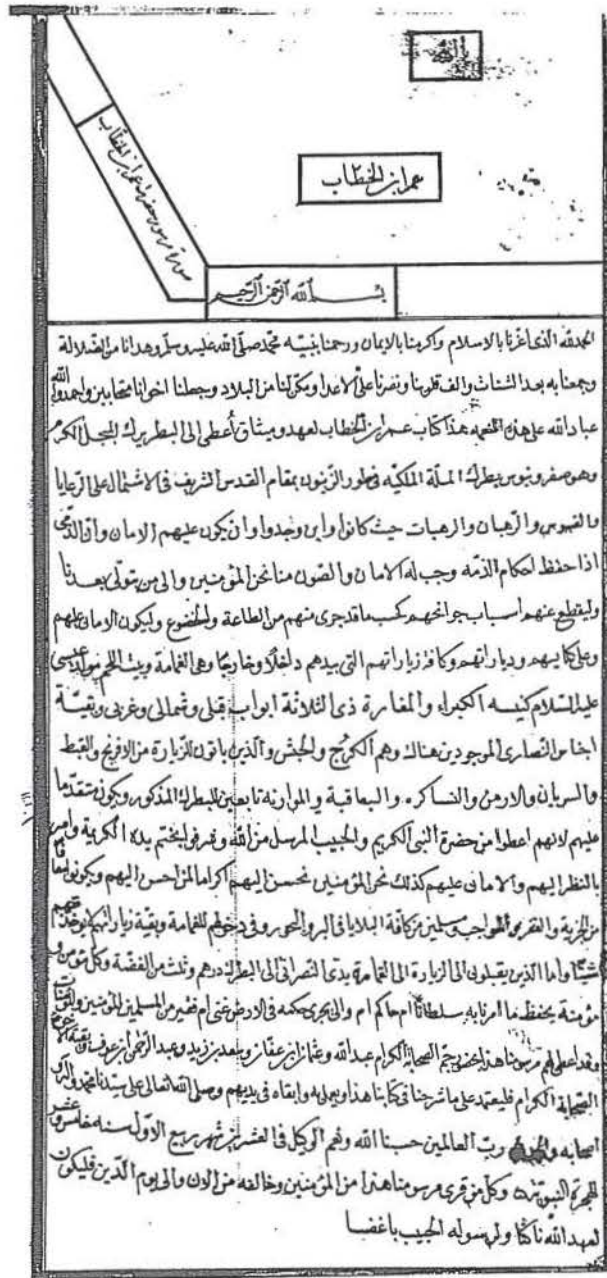 بالله
عمر ابن الخطاب
صورة مرسوم حضرة عمر ابن الخطاب
بسم الله الرحمن الرحيم
الحمد لله الذى اعزنا بالاسلام واكرمنا بالايمان ورحمنا بنبيه محمد صلى الله عليه وسلم وهدانا من الضلالة
وجمعنا به بعد الشتات والف قلوبنا ونصرنا على الاعدا ومكن لنا من البلاد وجعلنا اخوانا متحابين واحمدوا الله
عباد الله على هذه النعمة هذا كتاب عمر ابن الخطاب لعهد وميثاق أعطى الى البطريرك المبجل المكرم
وهو صفرونيوس بطرك الملة الملكيه فى طور الزيتون بمقام القدس الشريف فى الاشتمال على الرعايا
والقسوس والرهبان والرهبات حيث كانوا واين وجدوا وان يكون عليهم الامان وان الذمى
اذا حفظ احكام الذمه وجب له الامان والصون منا نحن المؤمنين والى من يتولى بعدنا
وليقطع عنهم اسباب جوانحهم كحسب ما قد جرى منهم من الطاعة والخضوع وليكون الامان عليهم
وعلى كنايسهم ودياراتهم وكافة زياراتهم التى بيدهم داخلا وخارجا وهى القمامة وبيت اللحم مولد عيسى
عليه السلام كنيسه الكبراء والمغارة ذى الثلاثة ابواب قبلى وشمالى وغربى وبقية
اجناس النصارى الموجودين هناك وهم الكرج والحبش والذين ياتون للزيارة من الافرنج والقبط
والسريان والارمن والنساكره واليعاقبة والموارنه تابعين للبطرك المذكور ويكون متقدما
عليهم لانهم اعطوا من حضرة النبى الكريم والحبيب المرسل من الله وشرفوا بختم يده الكريمة وامر
بالنظر اليهم والامان عليهم كذلك نحن المؤمنين نحسن اليهم اكراما لمن احسن اليهم ويكونوا معافا
من الجزية والغفر والمواجب ومسلمين من كافة البلايا فى البر والبحور وفى دخولهم للقمامة وبقية زياراتهم لا يوخذ منهم
شيئا واما الذين يقبلون الى الزيارة الى القمامة يودى النصرانى الى البطرك درهم وثلث من الفضة وكل مؤمن و
مؤمنة يحفظ ما امرنا به سلطانا ام حاكم ام والى يجرى حكمه فى الارض غنى ام فقير من المسلمين المؤمنين والمؤمنات
وقد اعطى لهم مرسومنا هذا بحضور جم الصحابة الكرام عبد الله وعثمان ابن عفان وسعد بن زيد وعبد الرحمن ابن عوف وبقية الاخوة
الصحابة الكرام فليعتمد على ما شرحنا فى كتابنا هذا ويعمل به وابقاه فى يديهم وصلى الله تعالى على سيدنا محمد واله و
اصحابه والحمد لله رب العالمين حسبنا الله ونعم الوكيل فى العشرين من شهر ربيع الاول سنه خامس وعشر
للهجرة النبوية وكل من قرى مرسومنا هذا من المؤمنين وخالفه من الان والى يوم الدين فليكون
لعهد الله ناكثا ولرسوله الحبيب باغضا